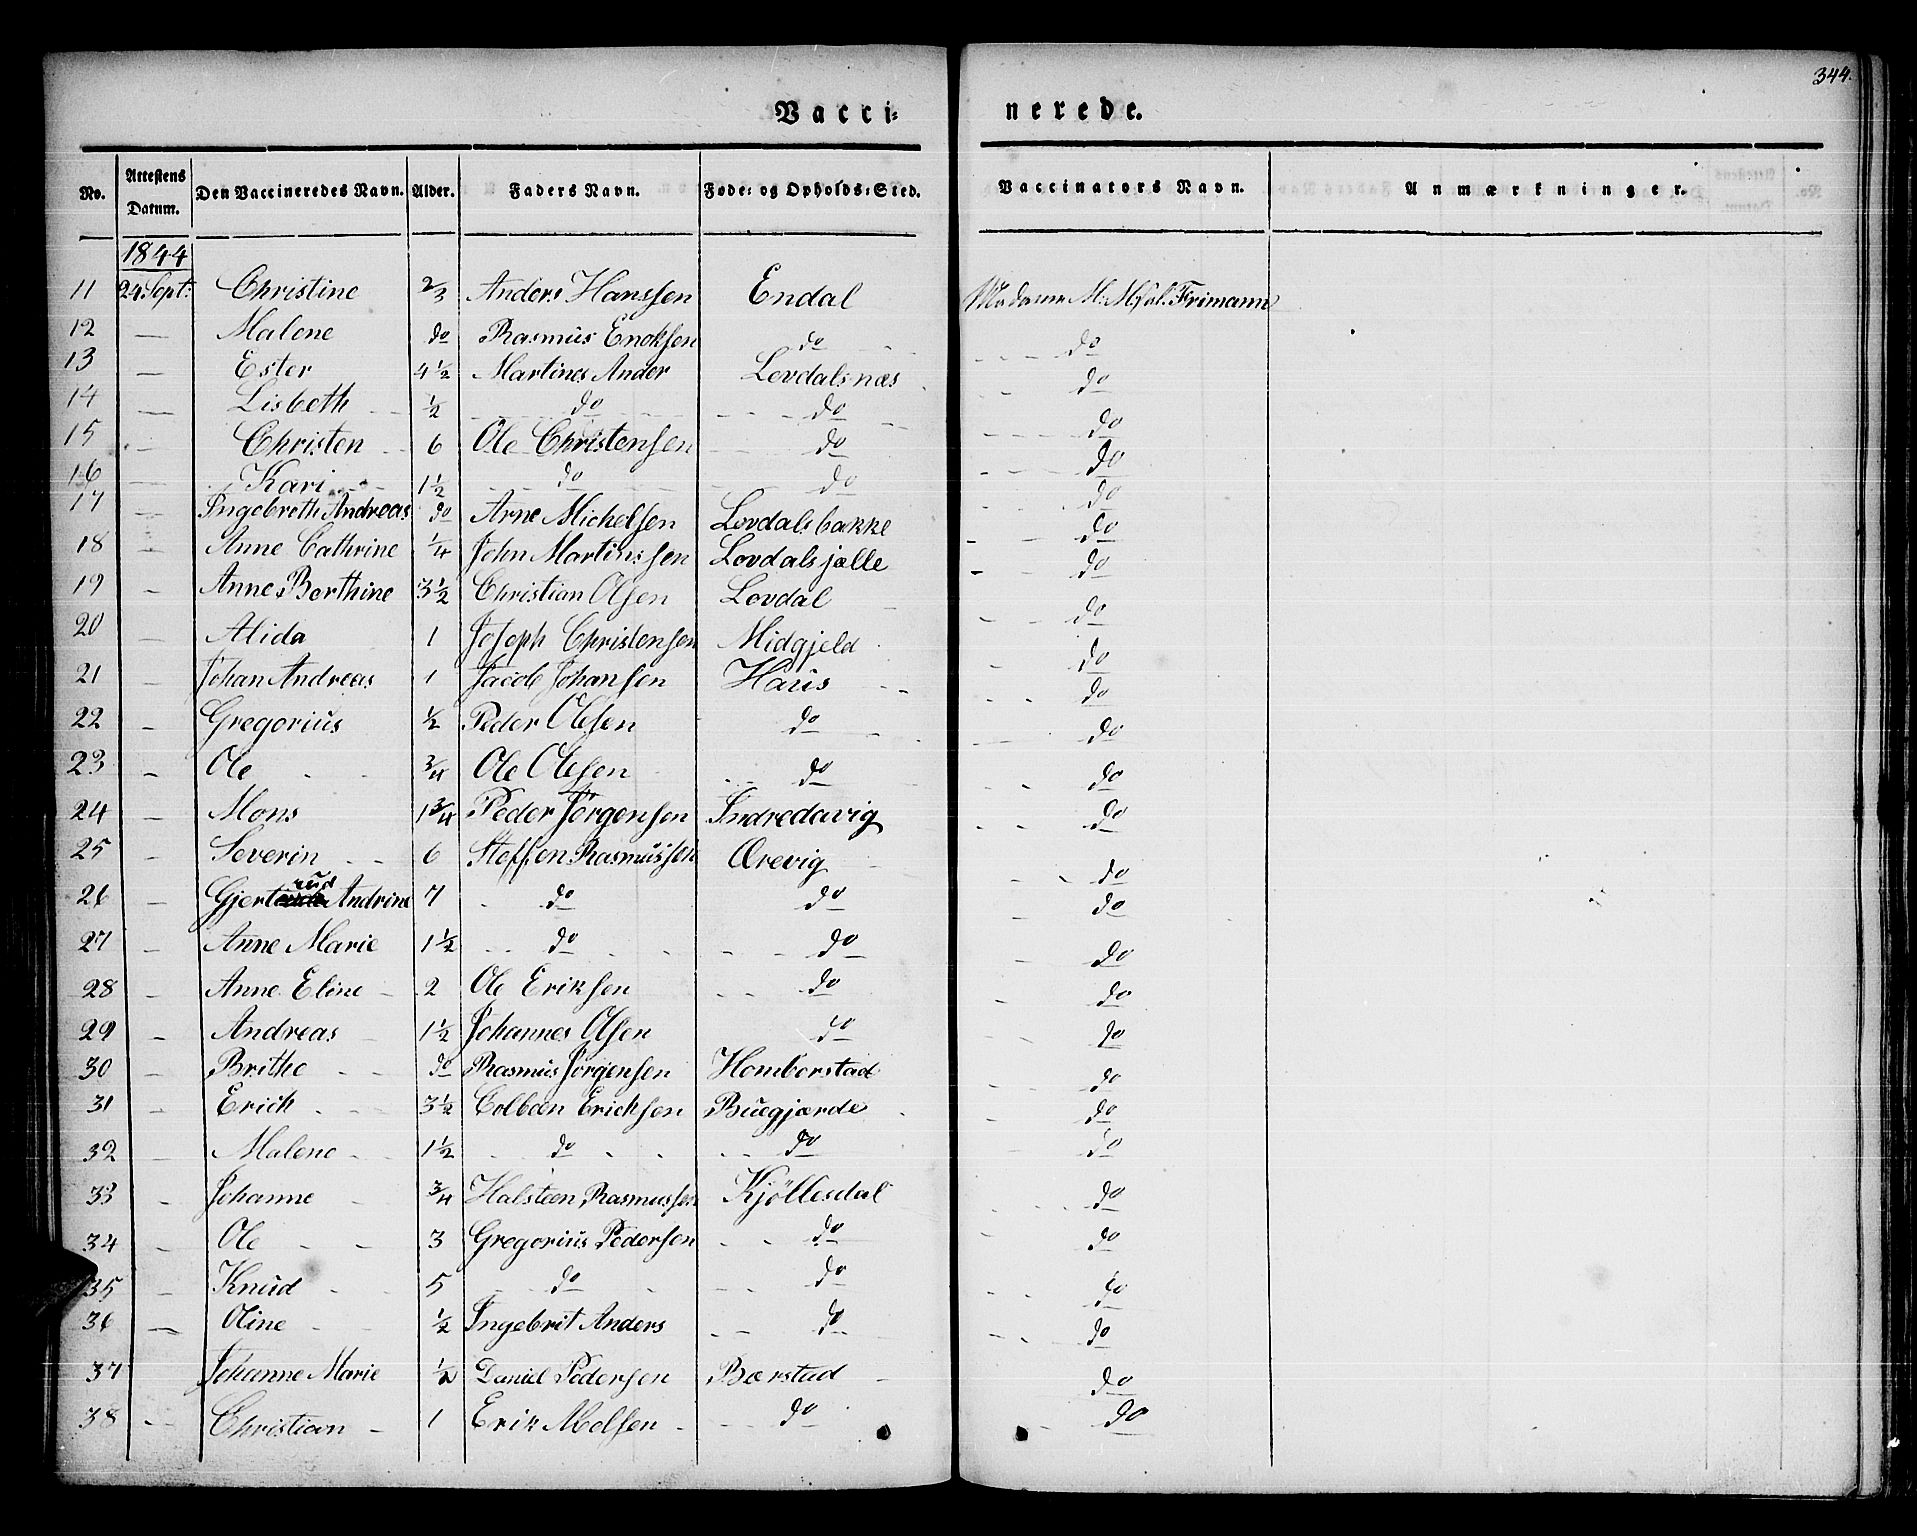 344.
Vacci= nerede.
No. Attestens Datum. Den Vaccineredes Navn. Alder. Faders Navn. Føde= og Opholds=Sted. Vaccinators Navn. Anmærkninger.
1844
11 24 Sept: Christine 2/3 Anders Hanssen Endal Madame M. Frimann
12 — Malene do Rasmus Enoksen do do
13 — Ester 4 1/2 Martines Ander Lovdalsnæs do
14 — Lisbeth 1/2 do do do
15 — Christen 6 Ole Christensen do do
16 — Kari 1 1/2 do do do
17 — Ingebreth Andreas do Arne Michelsen Lovdalsbakke do
18 — Anne Cathrine 1/4 John Martinssen Lovdalsjælle do
19 — Anne Berthine 3 1/2 Christian Olsen Lovdal do
20 — Alida 1 Joseph Christensen Midgjeld do
21 — Johan Andreas 1 Jacob Johansen Haus do
22 — Gregorius 1/2 Peder Olesen do do
23 — Ole 3/4 Ole Olesen do do
24 — Mons 1 3/4 Peder Jørgensen Indredavig do
25 — Severin 6 Steffen Rasmussen Ørevig do
26 — Gjertrud Andrine 7 do do do
27 — Anne Marie 1 1/2 do do do
28 — Anne Eline 2 Ole Eriksen do do
29 — Andreas 1 1/2 Johannes Olsen do do
30 — Brithe do Rasmus Jørgensen Homborstad do
31 — Erich 3 1/2 Colben Ericksen Buegjærde do
32 — Malene 1 1/2 do do do
33 — Johanne 3/4 Halsteen Rasmussen Kjöllesdal do
34 — Ole 3 Gregorius Pedersen do do
35 Knud 5 do do do
36 — Oline 1/2 Ingebrit Anders do do
37 Johanne Marie 1/2 Daniel Pedersen Bærstad do
38 — Christian 1 Erik Molsen do do